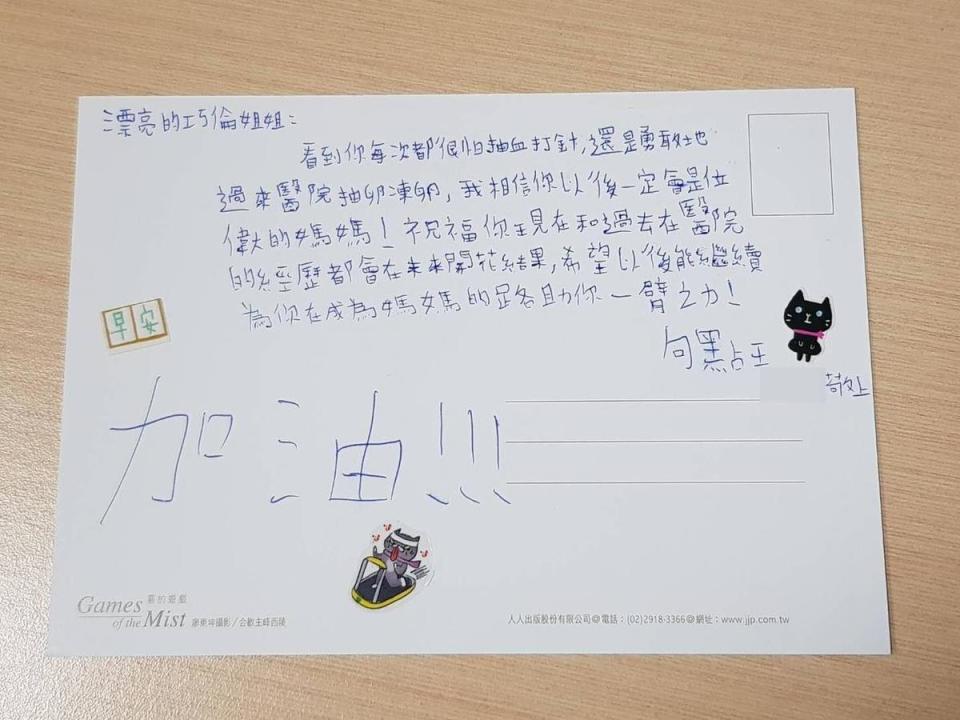 漂亮的巧倫姐姐：
看到你每次都很怕抽血打針，還是勇敢地
過來醫院抽卵凍卵，我相信你以後一定會是位
偉大的媽媽！祝福你現在和過去在醫院
的經歷都會在未來開花結果，希望以後能繼續
為你在成為媽媽的路助你一臂之力！
句點王
敬上
早安
加油!!!
Games of the Mist
霧的遊戲
廖東坤攝影／合歡主峰西陵
人人出版股份有限公司＠電話：(02)2918-3366＠網址：www.jjp.com.tw